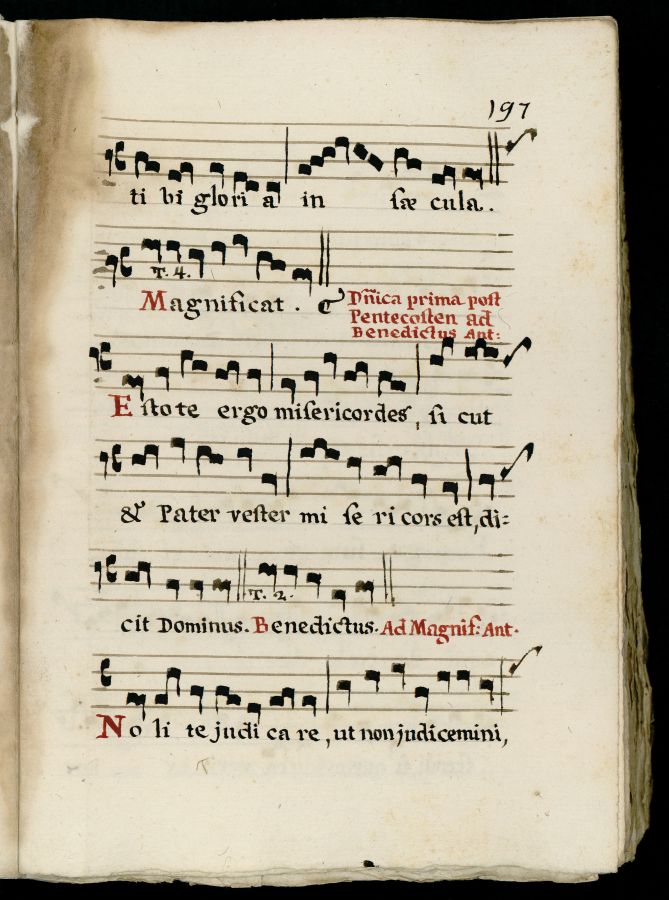 197
ti bi glori a in sæ cula.
T. 4.
Magnificat. & Dñica prima post
Pentecosten ad
Benedictus Ant:
E stote ergo misericordes, si cut
& Pater vester mi se ri cors est, di=
T. 2.
cit Dominus. Benedictus. Ad Magnif: Ant.
No li te judi ca re, ut non judicemini,